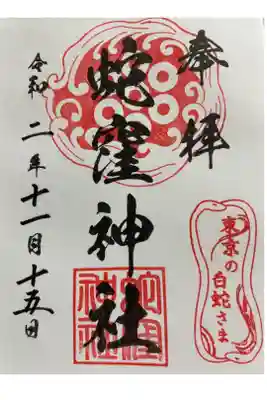 奉拝
蛇窪神社
令和二年十一月十五日
東京の
白蛇さま
蛇窪
神社